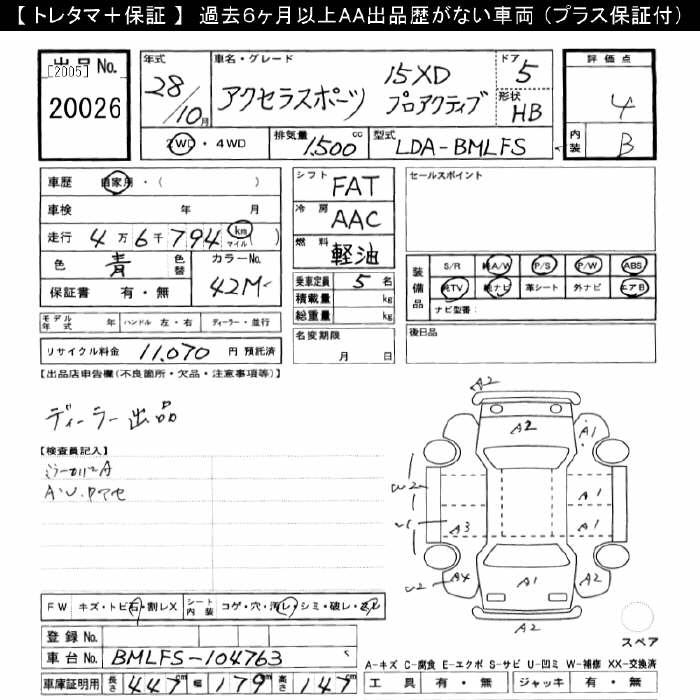 【 トレタマ＋保証 】 過去6ヶ月以上AA出品歴がない車両 (プラス保証付)
出品No.
[2005]
20026
年式
28/10月
車名・グレード
アクセラスポーツ
15XD
プロアクティブ
ドア
5
形状
HB
2WD・4WD
排気量 1,500 cc
型式 LDA-BMLFS
評価点
4
内装
B
車歴 自家用・( )
車検 年 月
走行 4万6千794 km マイル ( )
色 青
色替
カラーNo.
42M
保証書 有・無
シフト FAT
冷房 AAC
燃料 軽油
乗車定員 5 名
積載量 kg
総重量 kg
名変期限
月 日
セールスポイント
装備品
S/R 純A/W P/S P/W ABS
純TV 純ナビ 革シート 外ナビ エアB
ナビ型番:
後日品
モデル年式 年 ハンドル 左・右 ディーラー・並行
リサイクル料金 11,070 円 預託済
【出品店申告欄(不良箇所・欠品・注意事項等)】
ディーラー出品
【検査員記入】
ミラーカバーA
A・U・ワアセ
A2
A2
A1
W2
A1
U1
A3
A1
U2
AX
A1
A2
A2
スペア
FW キズ・トビ石・割レX
シート内装 コゲ・穴・汚レ・シミ・破レ・スレ
登録No.
車台No. BMLFS-104763
車庫証明用 長さ 447cm 幅 179cm 高さ 147cm
A-キズ C-腐食 E-エクボ S-サビ U-凹ミ W-補修 XX-交換済
工具 有・無 ジャッキ 有・無